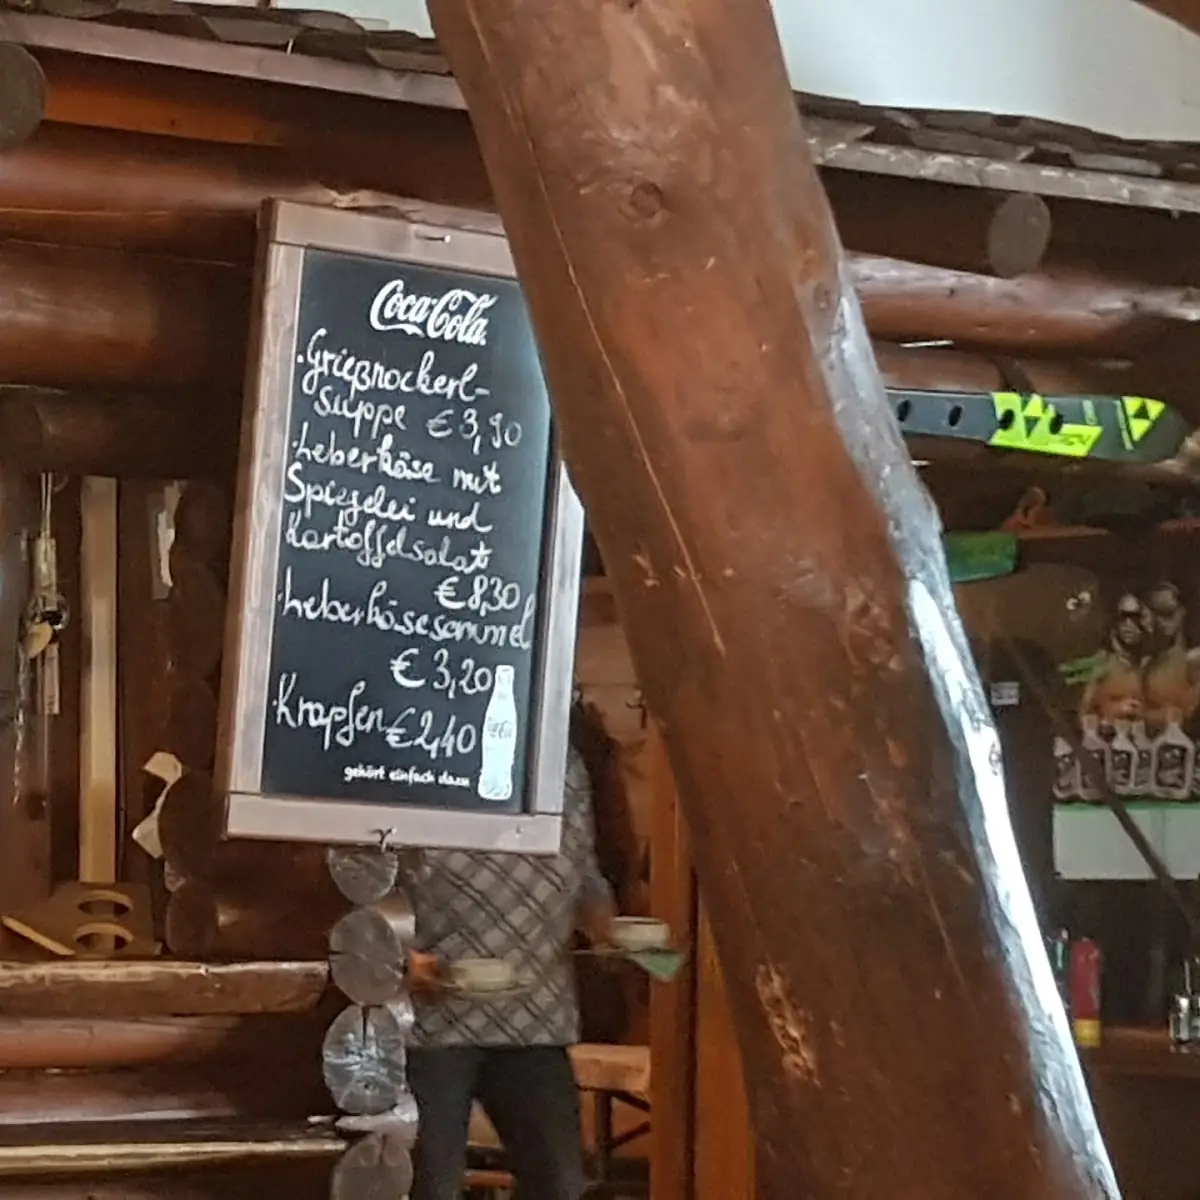 Coca-Cola
·Grießnockerl-
suppe € 3,90
·Leberkäse mit
Spiegelei und
Kartoffelsalat
€ 8,30
·Leberkäsesemmel
€ 3,20
·Krapfen € 2,40
gehört einfach dazu